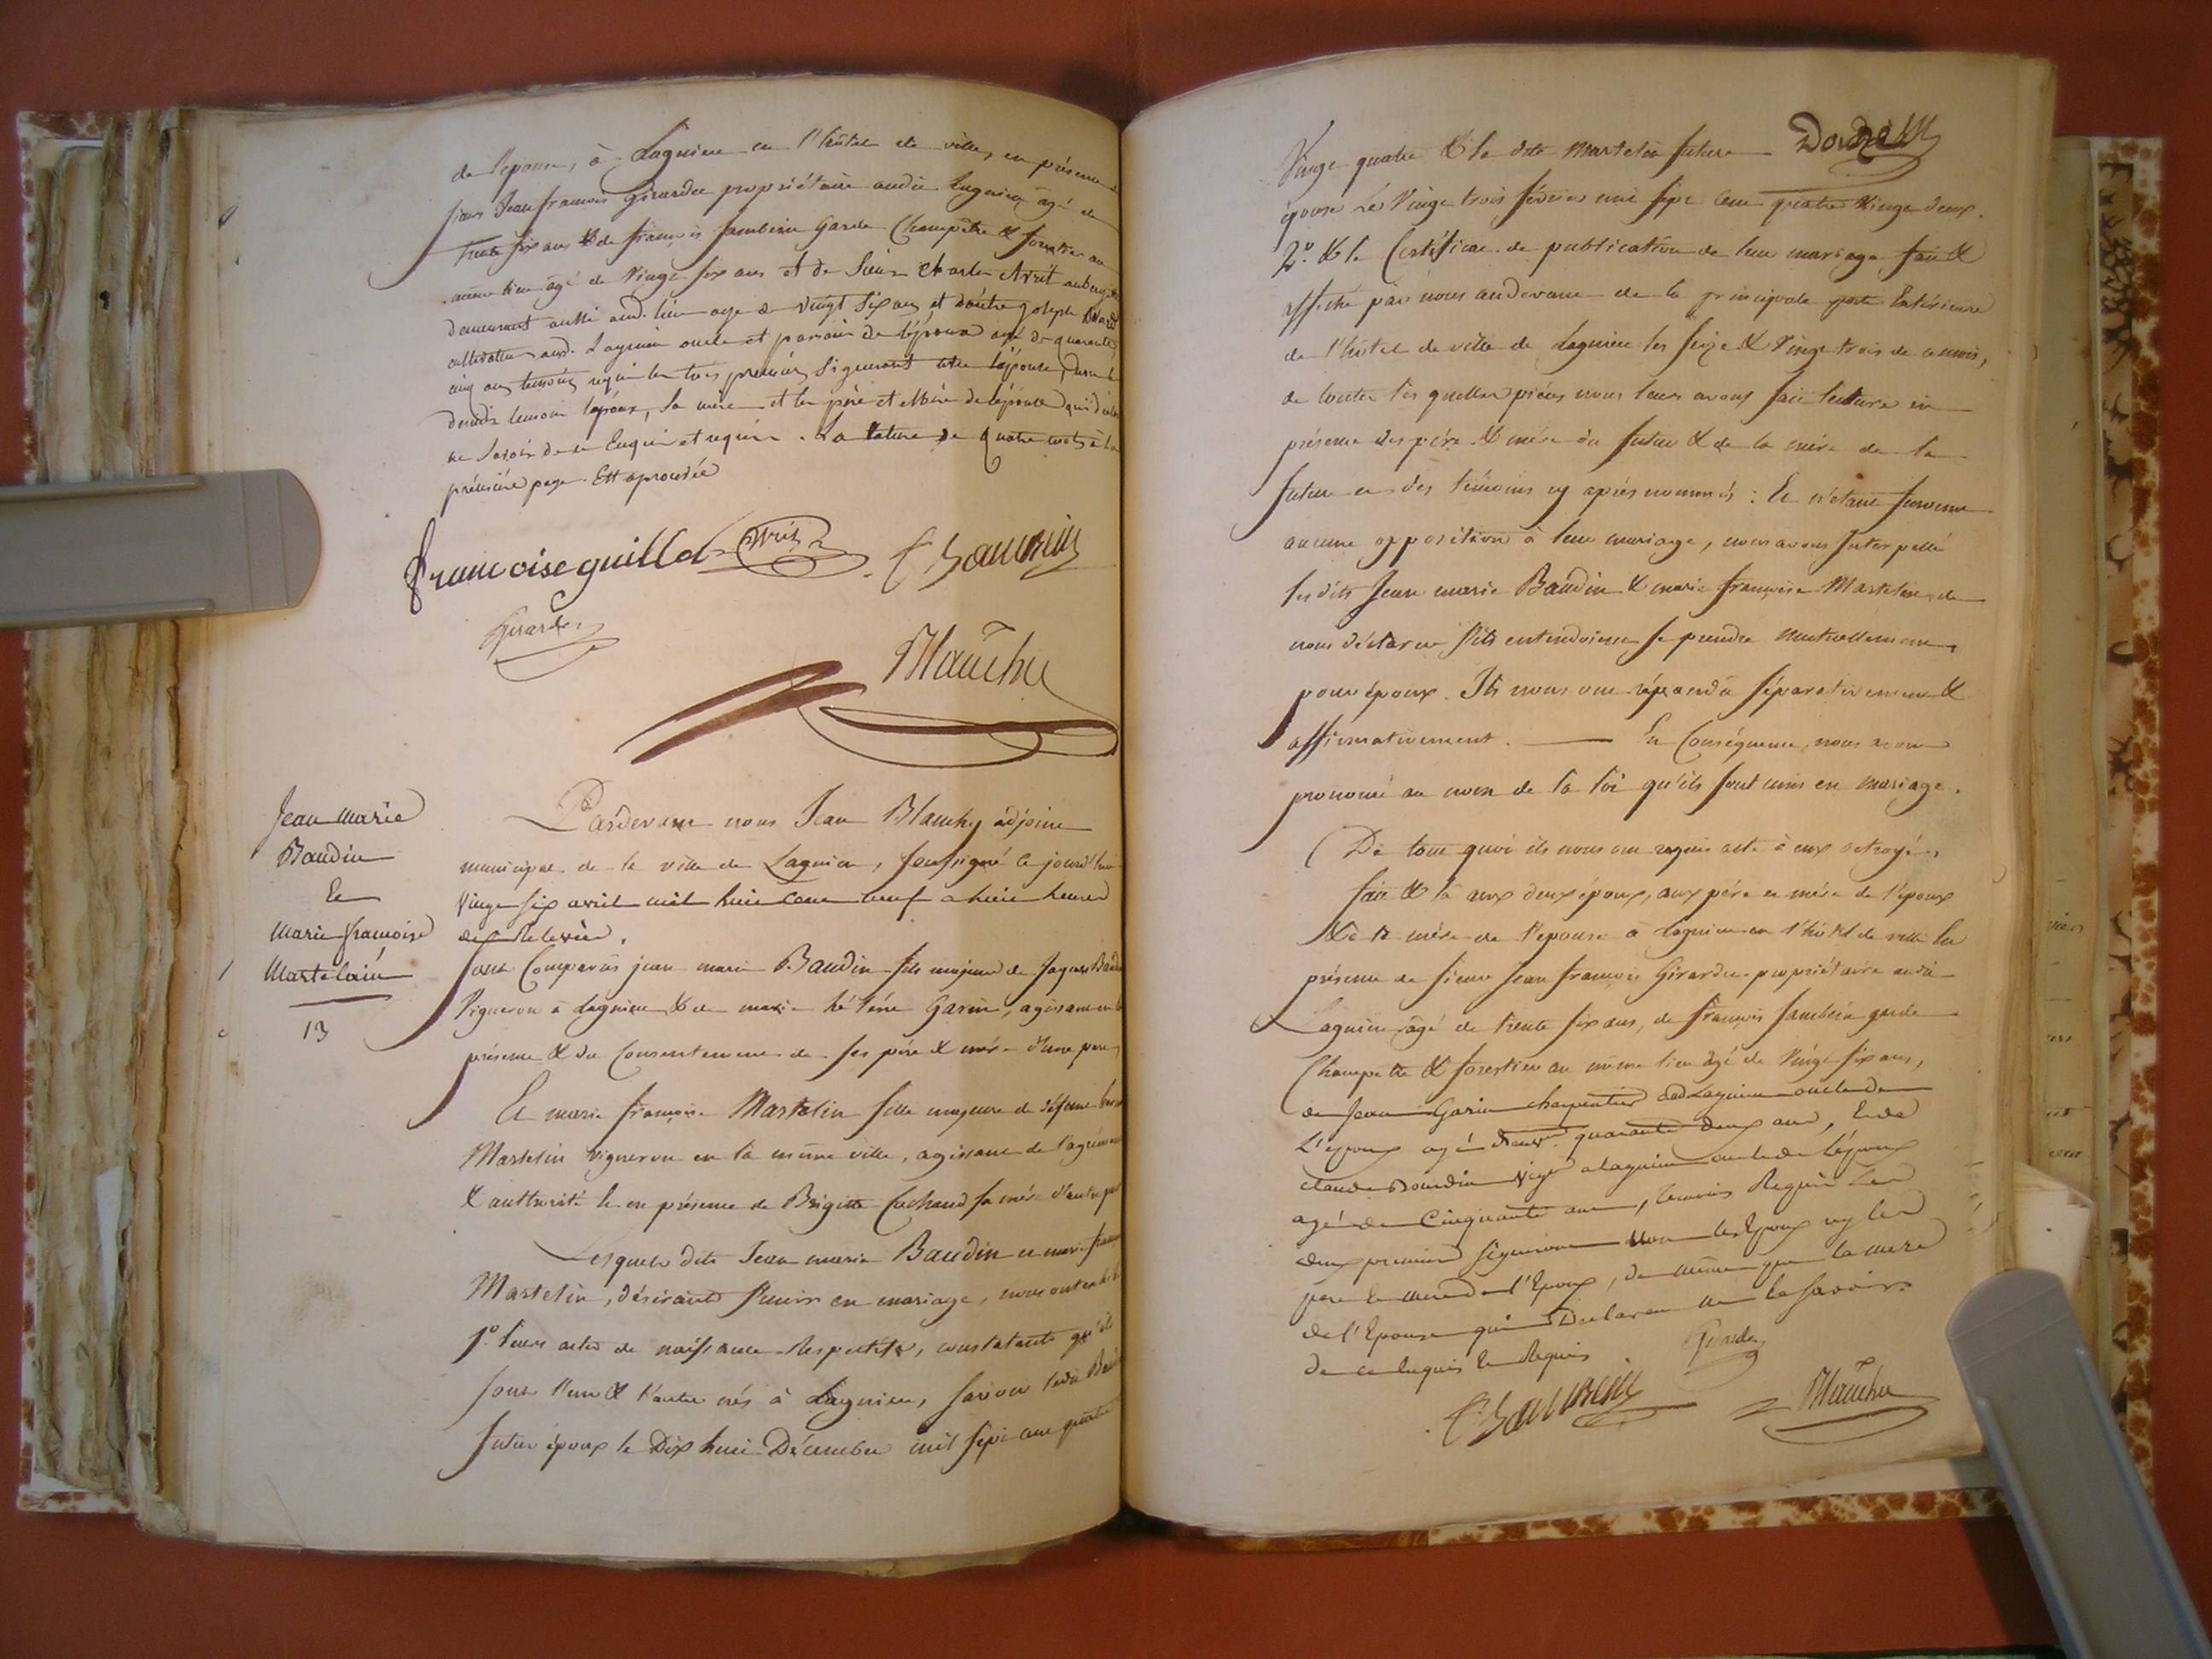 de l'épouse, à Lagnieu en l'hôtel de ville, en présence
sieurs Jean françois Girardu propriétaire audit Lagnieu âgé de
trente six ans & de françois Jambein Garde Champêtre & forestier au
même lieu âgé de Vingt six ans et de Sieur Charles Avrit
demeurant aussi aud. lieu age de vingt six ans et dautre joseph
cultivateur aud. Lagnieu oncle et parain de lépoux agé de quarante
cinq ans temoins requis les trois premiers signeront avec lépouse,
dernier temoin lepoux, sa mere et les père et Mère de lépouse qui
ne savoir de ce Enquis et requis. La rature de quatre mots à la
première page Est aprouvée
francoise guillod Avrit
Girardu
Blanchy
Jean marie
Baudin
Et
Marie françoise
Martelain
13
Pardevant nous Jean Blanchy adjoint
municipal de la ville de Lagnieu, soussigné ce jourd'hui
Vingt six avril mil huit cent neuf a huit heures
Sont Comparus jean marie Baudin fils majeur de Jaques
Vigneron à Lagnieu & de marie hélène Garin, agissant en
présence & du Consentement de ses père & mère d'une part,
Et marie françoise Martelin fille majeure de défunt
Martelin vigneron en la même ville, agissant de l'agrément
& authorité & en présence de Brigitte Cuchaud sa mère d'autre part
Lesquels dits Jean marie Baudin et marie
Martelin, désirants s'unir en mariage, nous ont
1o. leurs actes de naissance respectifs, constatants qu'ils
sont l'un & l'autre nés à Lagnieu, savoir ledit
futur époux le Dix huit Décembre mil sept cent quatre
Vingt quatre & la dite Martelin future
épouse Le Vingt trois février mil sept cent quatre Vingt deux.
2o. & le Certificat de publication de leur mariage fait &
affiché par nous audevant de la principale porte Extérieure
de l'hôtel de ville de Lagnieu les seize & Vingt trois de ce mois,
de toutes les quelles pièces nous leurs avons fait lecture en
présence des père & mère du futur & de la mère de la
future et des témoins cy après nommés : Et n'étant survenu
aucune opposition à leur mariage, nous avons Interpellé
lesdits Jean marie Baudin & marie françoise Martelin de
nous déclarer s'ils entendoient se prendre mutuellement
pour époux. Ils nous ont répondu séparativement &
affirmativement. En Conséquence, nous avons
prononcé au nom de la loi qu'ils sont unis en mariage.
De tout quoi ils nous ont requis acte à eux octroyé,
fait & lû aux deux époux, aux père et mère de l'époux
& à la mère de l'epouse à Lagnieu en l'hôtel de ville En
présence de sieur Jean françois Girardu propriétaire audit
Lagnieu âgé de trente six ans, de françois Jambein garde
Champetre & forestier au même lieu âgé de Vingt six ans,
de Jean Garin charpentier dud Lagnieu oncle de
L'epoux agé quarante deux ans, Et de
Claude Baudin vign a lagnieu oncle de L'époux
agé de Cinquante ans, temoins Requis Les
deux premiers signeront non les Epoux ny les
pere & mere de l'Epoux, de même que la mere
de l'Epouse qui Declarent ne le savoir
de ce Enquis & Requis
Girardu
Blanchy